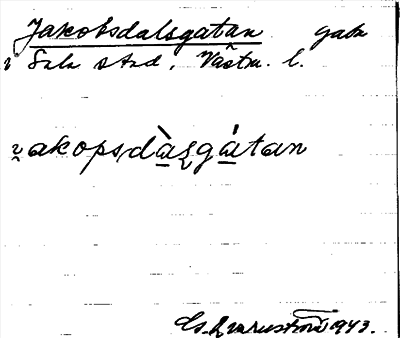 Jakobsdalsgatan gata
i Sala stad, Västm. l.
i̯akopsdàlsgátan
1943.